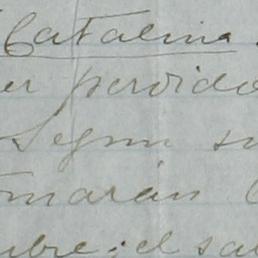 Catalina.
er perdido
Segun su
marán
bre; el sa